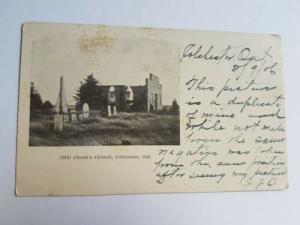 Colchester Oct
2/9/06
This picture
is a duplicate
of mine and
while not made
from the same
negative was taken
from the same position
after seeing my picture
(Old) Christ's Church, Colchester, Ill.